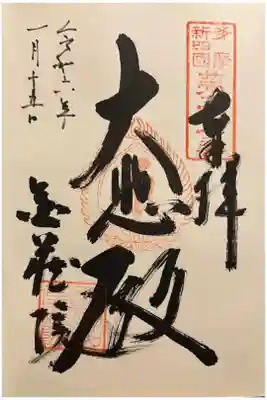 奉拝
多摩
新四國
大悲殿
金蔵院
令和六年
一月十五日